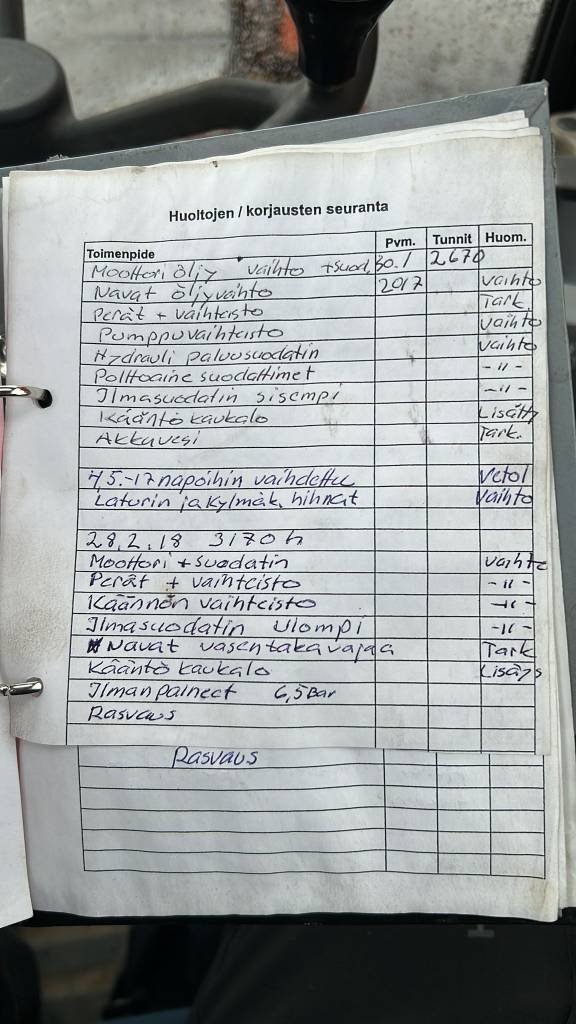 Huoltojen / korjausten seuranta
Toimenpide Pvm. Tunnit Huom.
Moottori öljy vaihto + suod. 30.1 2670
Navat öljyvaihto 2017 vaihto
Perät + vaihteisto Tark.
Pumppuvaihteisto vaihto
Hydrauli paluusuodatin vaihto
Polttoaine suodattimet -"-
Ilmasuodatin sisempi -"-
Kääntö kaukalo Lisätty
Akkuvesi Tark.
45.-17 napoihin vaihdettu Vetol
Laturin ja kylmäk. hihnat Vaihto
28.2.18 3170 h
Moottori + suodatin vaihto
Perät + vaihteisto -"-
Käännön vaihteisto -"-
Ilmasuodatin ulompi -"-
Navat vasen taka vajaa Tark
Kääntö kaukalo Lisäys
Ilman paineet 6,5 Bar
Rasvaus
Rasvaus